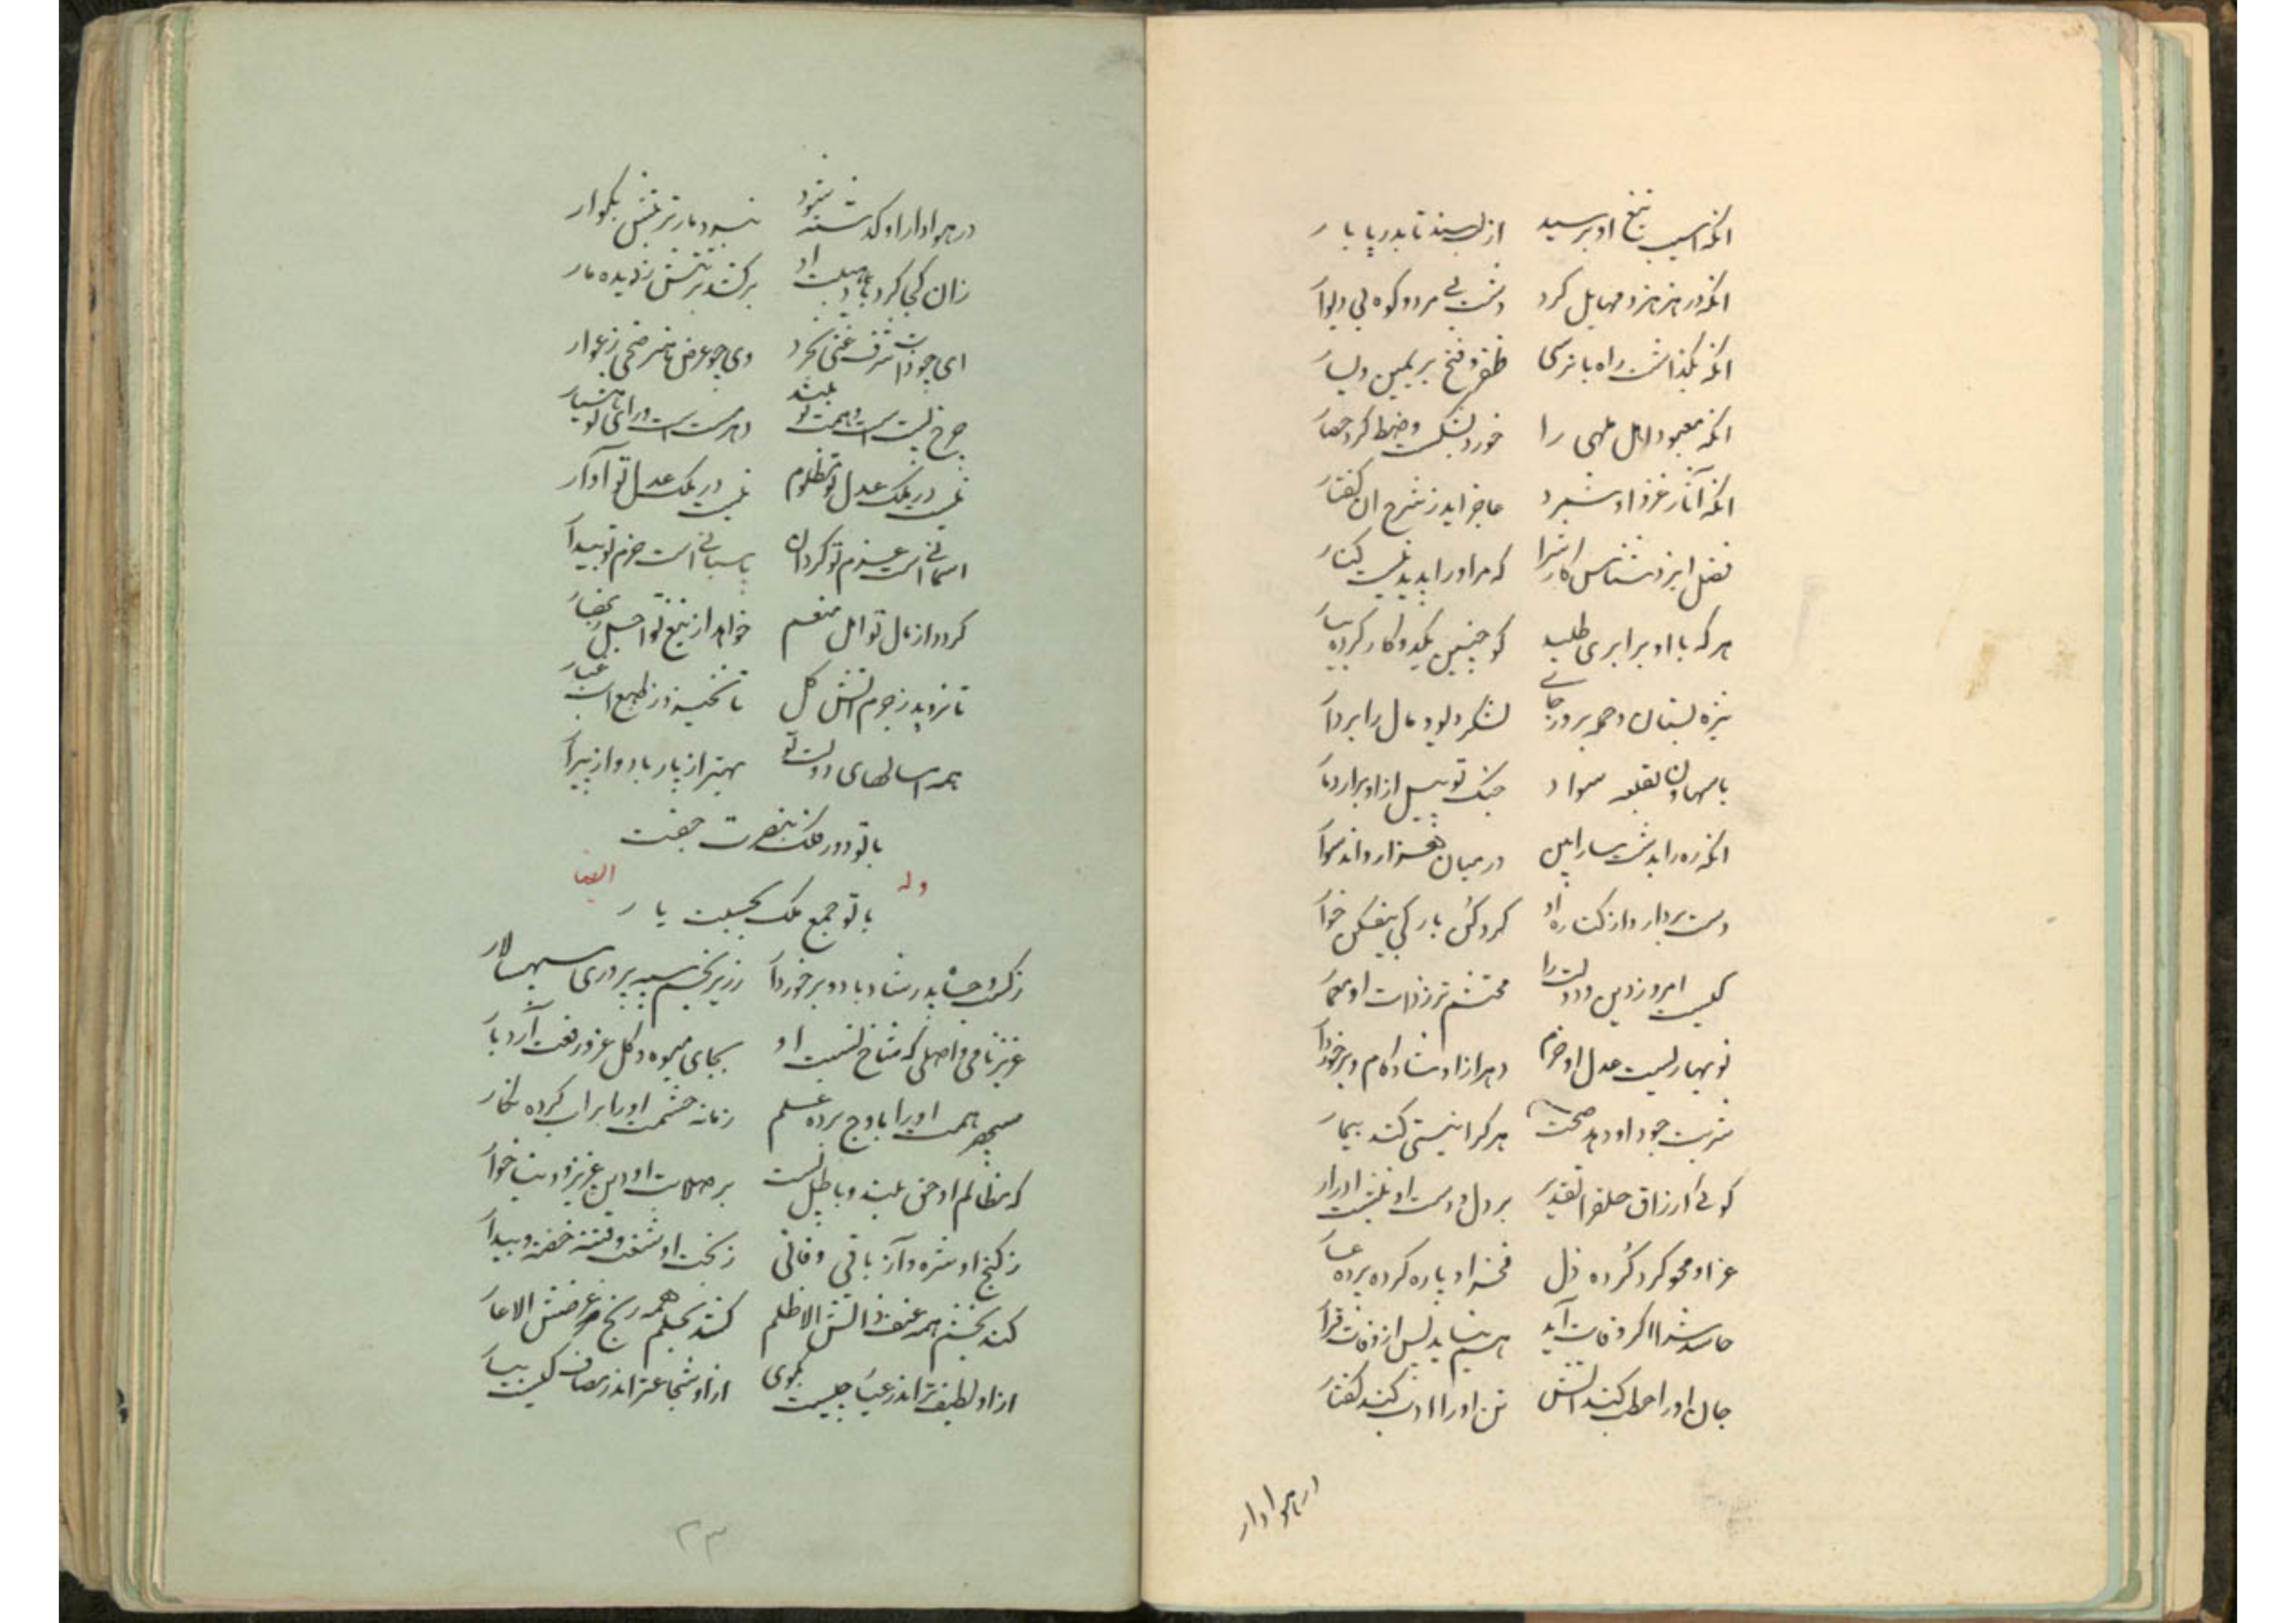 انکه اسیب تیغ او برسید از لب سند تا بدریا بار
انکه در هنر هنر و مهیابل کرد دشت بی مرد و کوه بی دیوار
انکه بگذاشت راه با نرسی ظفر و فتح بر یمین و یسار
انکه معبود اهل ملهی را خورد بشکست و ضبط کرد حصار
انکه آثار غزو او شمرد عاجز اید ز شرح ان کفتار
فضل ایزد شناس کارش را که مر او را پدید نیست کنار
هر که با او برابری طلبد کو چنین یکد و کار کرده بیار
نیزه بستان و حمله بر در جانی لشکر دیو و مال را بردار
با مهاون بقلعه سواد جنک تو بیل از او برار دمار
انکه ره را بدشت سارامین در میان
دست بردار دار کناره او کردکش بار کی
کیست امروز دین و دولت را محتشم تر ز ذات او معمار
نوبهاریست عدل او خرم دهر از او شاد کام و برخوردار
شربت جود او دهد صحت هر کرا نیستی کند بیمار
کوئی ارزاق خلق را تقدیر بر دل و دست او نبشت ادرار
عز او محو کرد کرده ذل فخر او پاره کرده پرده عار
حاسدش را اکر وفات آید هم نیابد پس از وفات قرار
جان او را حطب کند آتش تن او را ادب کند کفتار
در هوادار
در هوادار او کذشته نبود نبسود مار ترنیش بکوار
زان کجا کرد باد هیبت او برکشد برتنش ندیده مار
ای چو ذات شرف غنی بخرد وی چو عرض هنر ضحی ز عوار
چرخ پست است و همت تو بلند دهر مست است و رای تو هشیار
نیست در ملک عدل تو مظلوم نیست در ملک عدل تو آوار
اسمانی است عزم تو کردان پاسبانی است حزم تو بیدار
کردد از مال تو امل منعم خواهد از تیغ تو اجل زنهار
تا نروید ز جرم اتش کل تا نخیزد ز طبع اب غبار
همه امسالهای دولت تو بهتر از پار باد و از پیرار
با تو دور فلک بنصرت جفت
با تو جمع ملک بحسبت یار
وله ایضا
ز کسری و حشم بدر شاد باد و برخوردار وزیر نجم سپه پروری سپهسالار
عزیز نامی و اصلی که شاخ نسبت او بجای میوه و کل عز و رفعت آرد بار
سپهر همت او را باوج برده علم زمانه حشمت او را بر اب کرده نکار
که مظالم او حق بلند و باطل پست بر صلات او دین عزیز و دنیا خوار
ز کنج او شره و آز باقی و فانی ز بخت او شغب و فتنه خفته و بیدار
کند بخشم همه عنف ذاتش الا ظلم کشد بحلم همه رنج عرضش الا عار
از او لطیف تر اندر عیب چیست بکوی از او شجاعتر اندر مصاف کیست بیار
۲۳